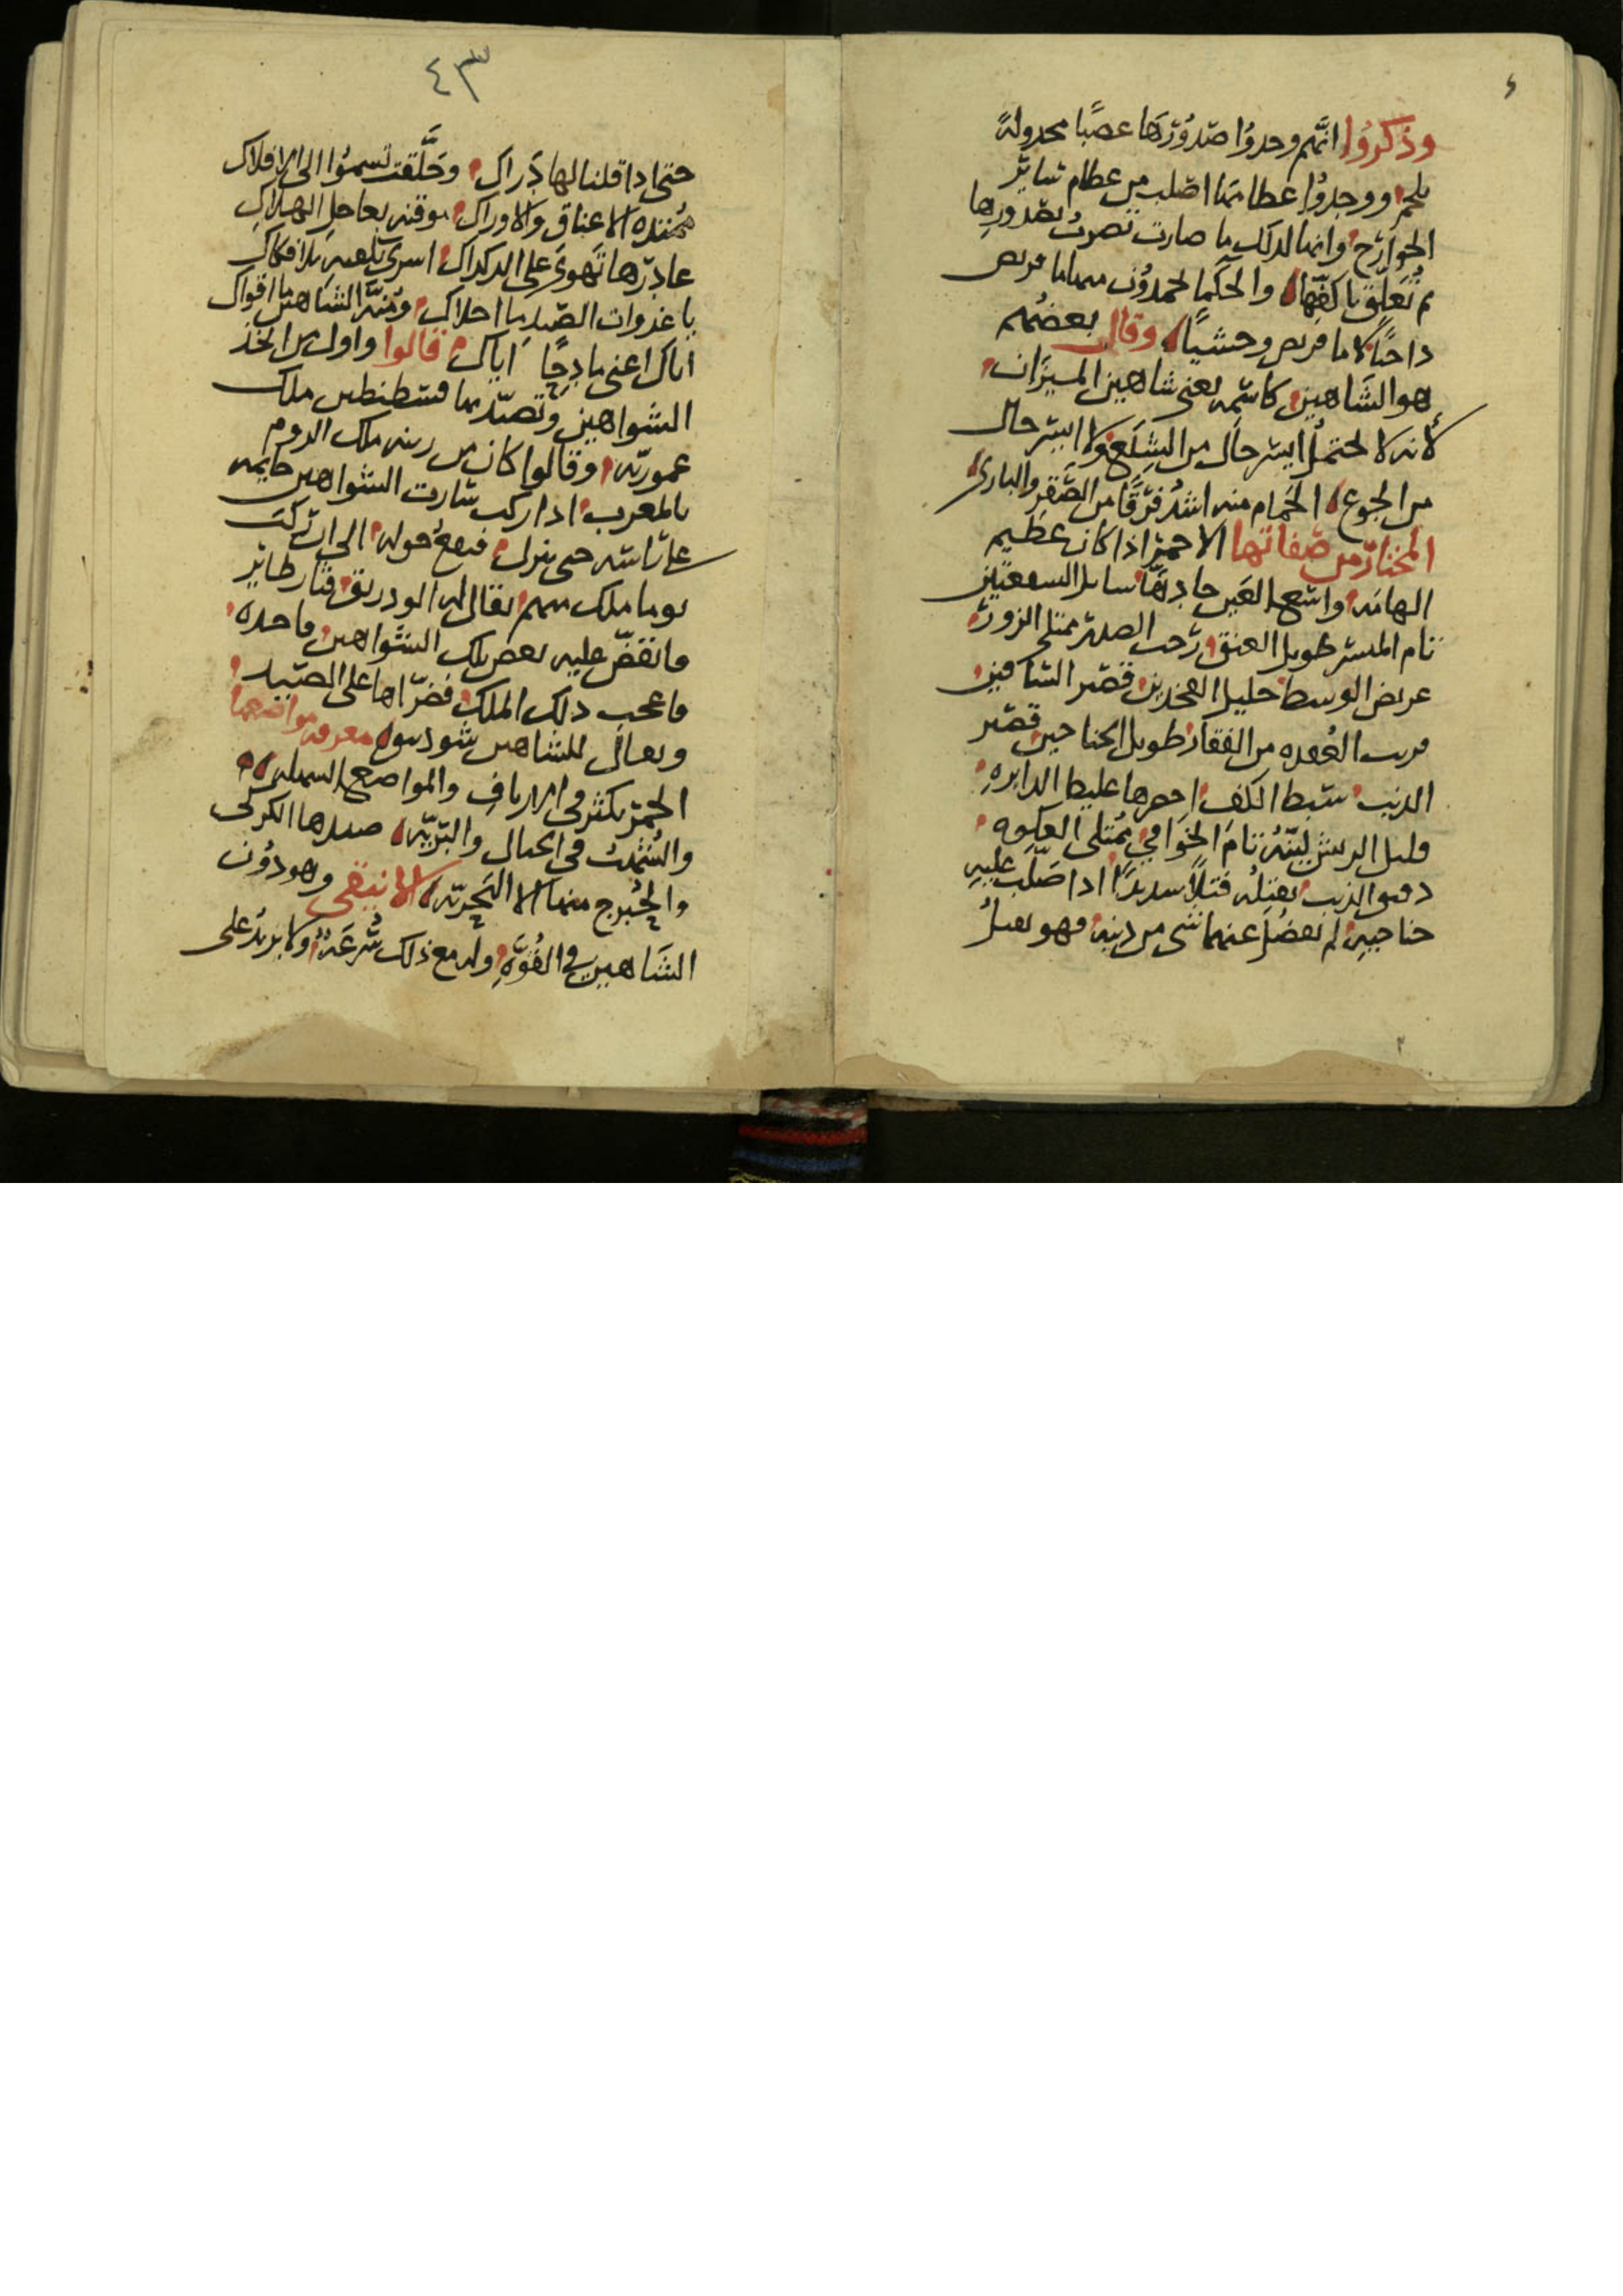 وذكروا انهم وجدوا صدورها عصبا مجدولة
بلحم ووجدوا عظامها اصلب من عظام ساير
الجوارح وانها لذلك ما صارت تضرب بصدورها
ثم تعلق باكفها والحكما يحمدون منها ما قرنص
داجنا لا ما قرنص وحشيا وقال بعضهم
هو الشاهين كاسمه يعنى شاهين الميزان
لانه لا يحتمل ايسر حال من الشبع ولا ايسر حال
من الجوع الحمام منه اشد فرقا من الصقر والبازى
المختار من صفاتها الاحمر اذا كان عظيم
الهامه واسع العين حادها سايل السفعتين
تام المنسر طويل العنق رحب الصدر ممتلى الزور
عريض الوسط جليل الفخذين قصير الساقين
قريب العقده من الفقار طويل الجناحين قصير
الذنب سبط الكف غليظ الدابره
قليل الريش لينه تام الخوافى ممتلى العكوه
دقيق الذنب يفتله فتلا سديدا اذا صلب عليه
جناحيه لم يفضل عنهما شى من ذنبه فهو يقتل
٤٣
حتى اذا قلنا لها دراك وحلقت تسموا الى الافلاك
الاعناق والاوراك موقنه بعاجل الهلاك
غادرها تهوى على الدكداك اسرى بلا فكاك
يا غدوات الصيد ما احلاك ومنة الشاهين ما اقواك
اياك اعنى مادحا اياك قالوا واول من اتخذ
الشواهين وتصيد بها قسطنطين ملك
عموريه وقالوا كان من رتبه ملك الروم
بالمغرب اذا ركب سارت الشواهين حايمه
على راسه حتى ينزل فتقع حوله الى ان ركب
يوما ملك منهم يقال له فثار طاير
فانقض عليه بعض تلك الشواهين فاخذه
فاعجب ذلك الملك فضراها على الصيد
ويقال للشاهين معرفه مواضعها
الحمر يكثر فى الارياف والمواضع السهليه
والشهب فى الجبال والبريه صيدها الكركى
والحبرج منها الا البحريه الانيقى وهو دون
الشاهين فى القوه وله مع ذلك سرعة ولا يريد على